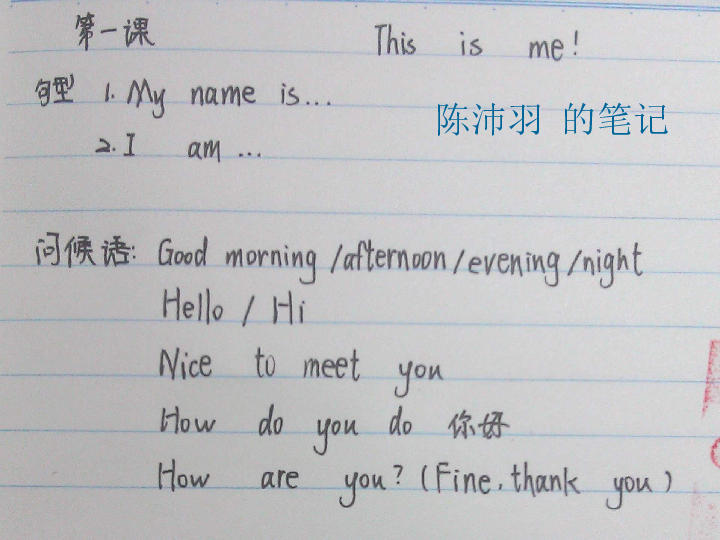 第一课 This is me!
句型 1. My name is...
陈沛羽 的笔记
2. I am ...
问候语: Good morning /afternoon/evening/night
Hello / Hi
Nice to meet you
How do you do 你好
How are you? (Fine, thank you)